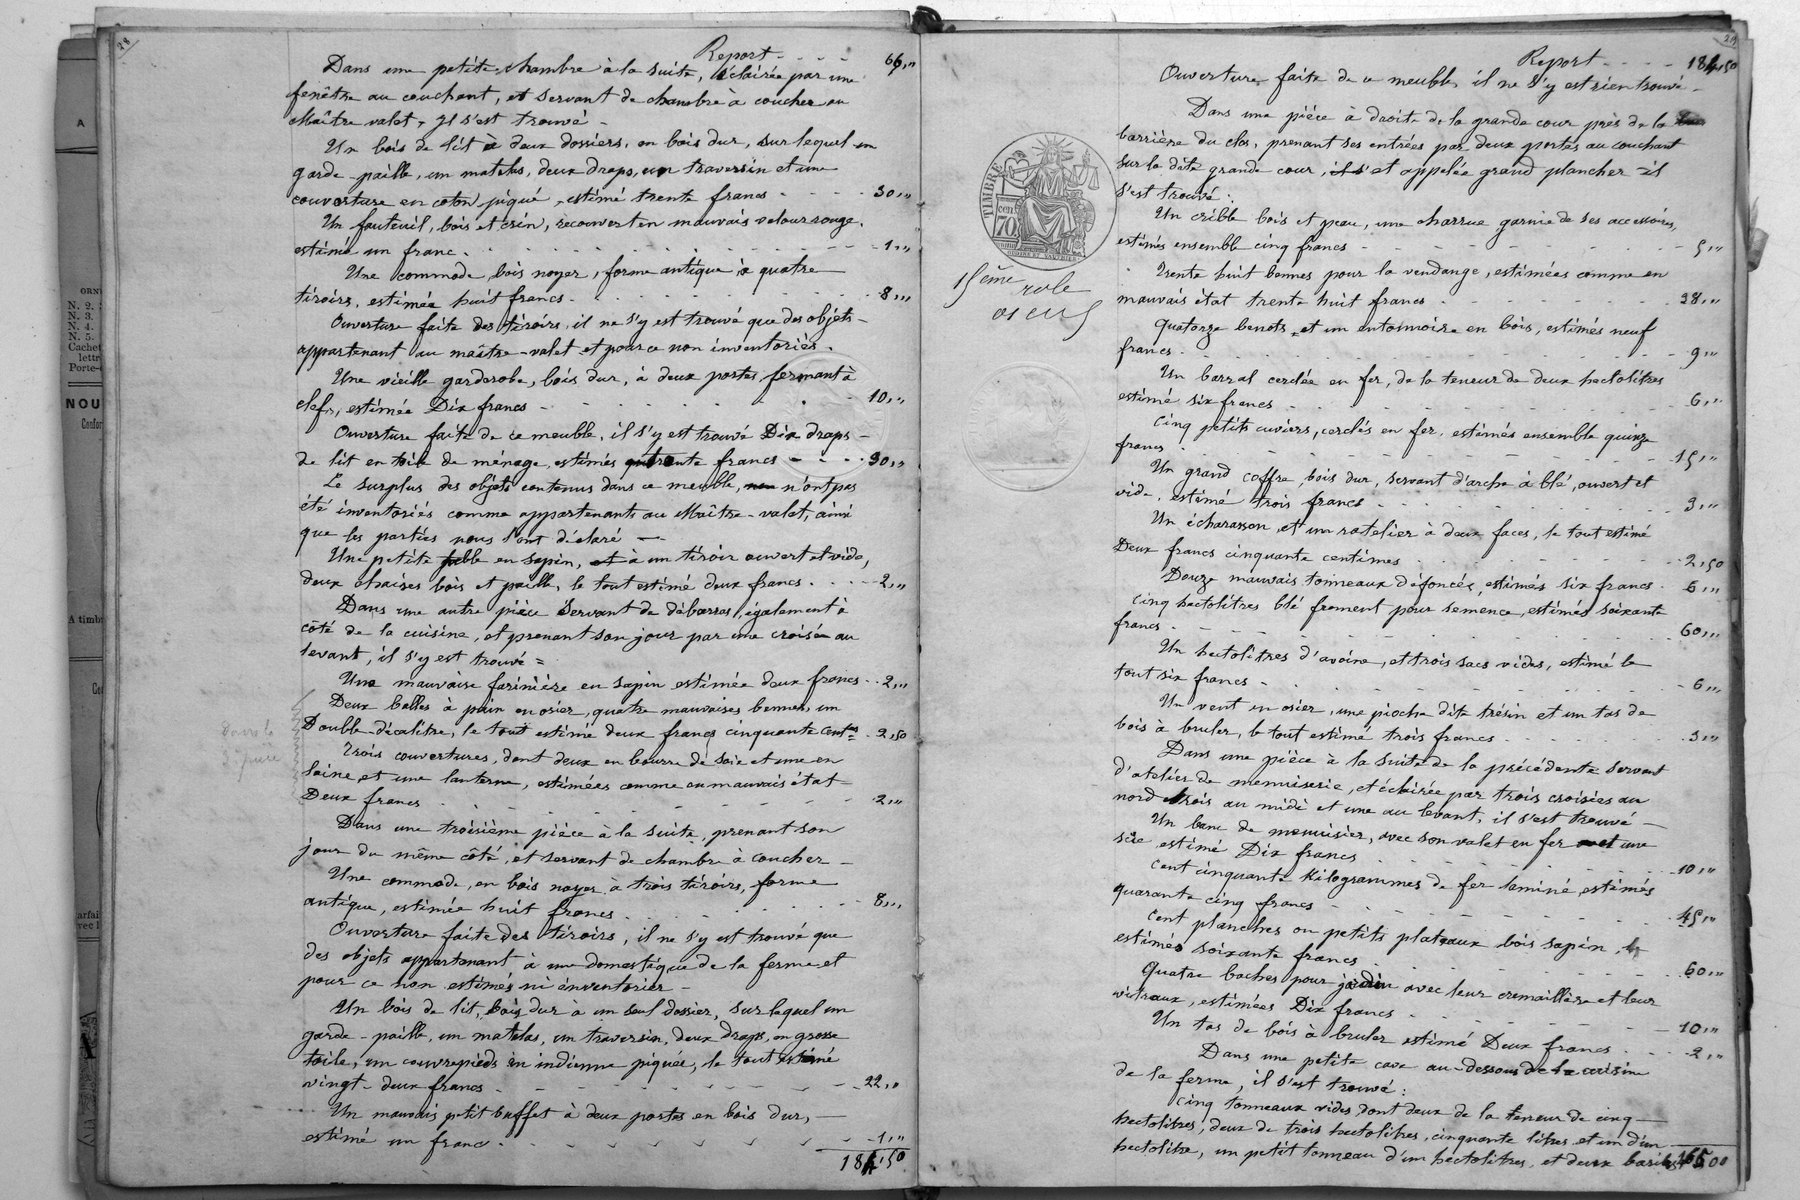 28
Report - - - - 66,"
Dans une petite chambre à la suite, éclairée par une
fenêtre au couchant, et servant de chambre à coucher au
Maître valet, Il s'est trouvé -
Un bois de lit à deux dossiers, en bois dur, sur lequel un
garde-paille, un matelas, deux draps, un traversin et une
couverture en coton piqué, estimé trente francs - - - - 30,"
Un fauteuil, bois et crin, recouvert en mauvais velour rouge,
estimé un franc. - - - - 1,"
Une commode, bois noyer, forme antique à quatre
tiroirs, estimée huit francs. - - - - 8,"
Ouverture faite des tiroirs, il ne s'y est trouvé que des objets
appartenant au maître-valet et pour ce non inventoriés.
Une vieille garderobe, bois dur, à deux portes fermant à
clef, estimée Dix francs - - - - 10,"
Ouverture faite de ce meuble, il s'y est trouvé Dix draps
de lit en toile de ménage, estimés trente francs - - - - 30,"
Le surplus des objets contenus dans ce meuble, n'ont pas
été inventoriés comme appartenant au Maître-valet, ainsi
que les parties nous l'ont déclaré -
Une petite table en sapin, et à un tiroir ouvert et vide,
deux chaises bois et paille, le tout estimé deux francs - - - 2,"
Dans une autre pièce servant de débarras, également à
côté de la cuisine, et prenant son jour par une croisée au
levant, il s'y est trouvé =
Une mauvaise farinière en sapin estimée deux francs - - 2,"
Deux balles à pain en osier, quatre mauvaises bennes, un
Double-décalitre, le tout estimé deux francs cinquante cent.es 2,50
Trois couvertures, dont deux en bourre de soie et une en
laine et une lanterne, estimées comme en mauvais état
Deux francs - - - - 2,"
Dans une troisième pièce à la suite, prenant son
jour du même côté, et servant de chambre à coucher -
Une commode, en bois noyer à trois tiroirs, forme
antique, estimée huit francs - - - - 8,"
Ouverture faite des tiroirs, il ne s'y est trouvé que
des objets appartenant à une domestique de la ferme et
pour ce non estimés ni inventoriés -
Un bois de lit, bois dur à un seul dossier, sur lequel un
garde-paille, un matelas, un traversin, deux draps, en grosse
toile, un couvrepieds en indienne piquée, le tout estimé
vingt-deux francs - - - - 22,"
Un mauvais petit buffet à deux portes en bois dur, -
estimé un franc - - - - 1,"
184,50
29
Report - - - - 184,50
Ouverture faite de ce meuble, il ne s'y est rien trouvé -
Dans une pièce à droite de la grande cour près de la
barrière du clos, prenant ses entrées par deux portes au couchant
sur la dite grande cour, et appelée grand plancher il
s'est trouvé :
Un crible bois et peau, une charrue garnie de ses accessoires,
estimés ensemble cinq francs - - - - 5,"
Trente huit bennes pour la vendange, estimées comme en
mauvais état trente huit francs - - - - 38,"
Quatorze benots, et un entonnoire en bois, estimés neuf
francs - - - - 9,"
Un barral cerclée en fer, de la teneur de deux hectolitres
estimé six francs - - - - 6,"
Cinq petits cuviers, cerclés en fer, estimés ensemble quinze
francs - - - - 15,"
Un grand coffre bois dur, servant d'arche à blé, ouvert et
vide, estimé trois francs - - - - 3,"
Un écharasson, et un ratelier à deux faces, le tout estimé
Deux francs cinquante centimes - - - - 2,50
Douze mauvais tonneaux défoncés, estimés six francs - 6,"
Cinq hectolitres blé froment pour semence, estimés soixante
francs - - - - 60,"
Un hectolitres d'avoine, et trois sacs vides, estimé le
tout six francs - - - - 6,"
Un vent en osier, une pioche dite trésin et un tas de
bois à bruler, le tout estimé trois francs - - - - 3,"
Dans une pièce à la suite de la précédente servant
d'atelier de menuiserie, et éclairée par trois croisées au
nord trois au midi et une au levant, il s'est trouvé -
Un banc de menuisier, avec son valet en fer et une
scie estimé Dix francs - - - - 10,"
Cent cinquante kilogrammes de fer laminé estimés
quarante cinq francs - - - - 45,"
Cent planches ou petits plateaux bois sapin,
estimés soixante francs - - - - 60,"
Quatre baches pour jardin avec leur cremaillère et leur
vitraux, estimées Dix francs - - - - 10,"
Un tas de bois à bruler estimé Deux francs - - - 2,"
Dans une petite cave au-dessous de la cuisine
de la ferme, il s'est trouvé :
Cinq tonneaux vides, dont deux de la teneur de cinq
hectolitres, deux de trois hectolitres, cinquante litres, et un d'un
hectolitre, un petit tonneau d'un hectolitres, et deux barils
TIMBRE
70 cen
15ème role
A
ORN
N. 2.
N. 3.
N. 4.
N. 5.
Cachet
lettr
Porte-
NOU
Confor
A timb